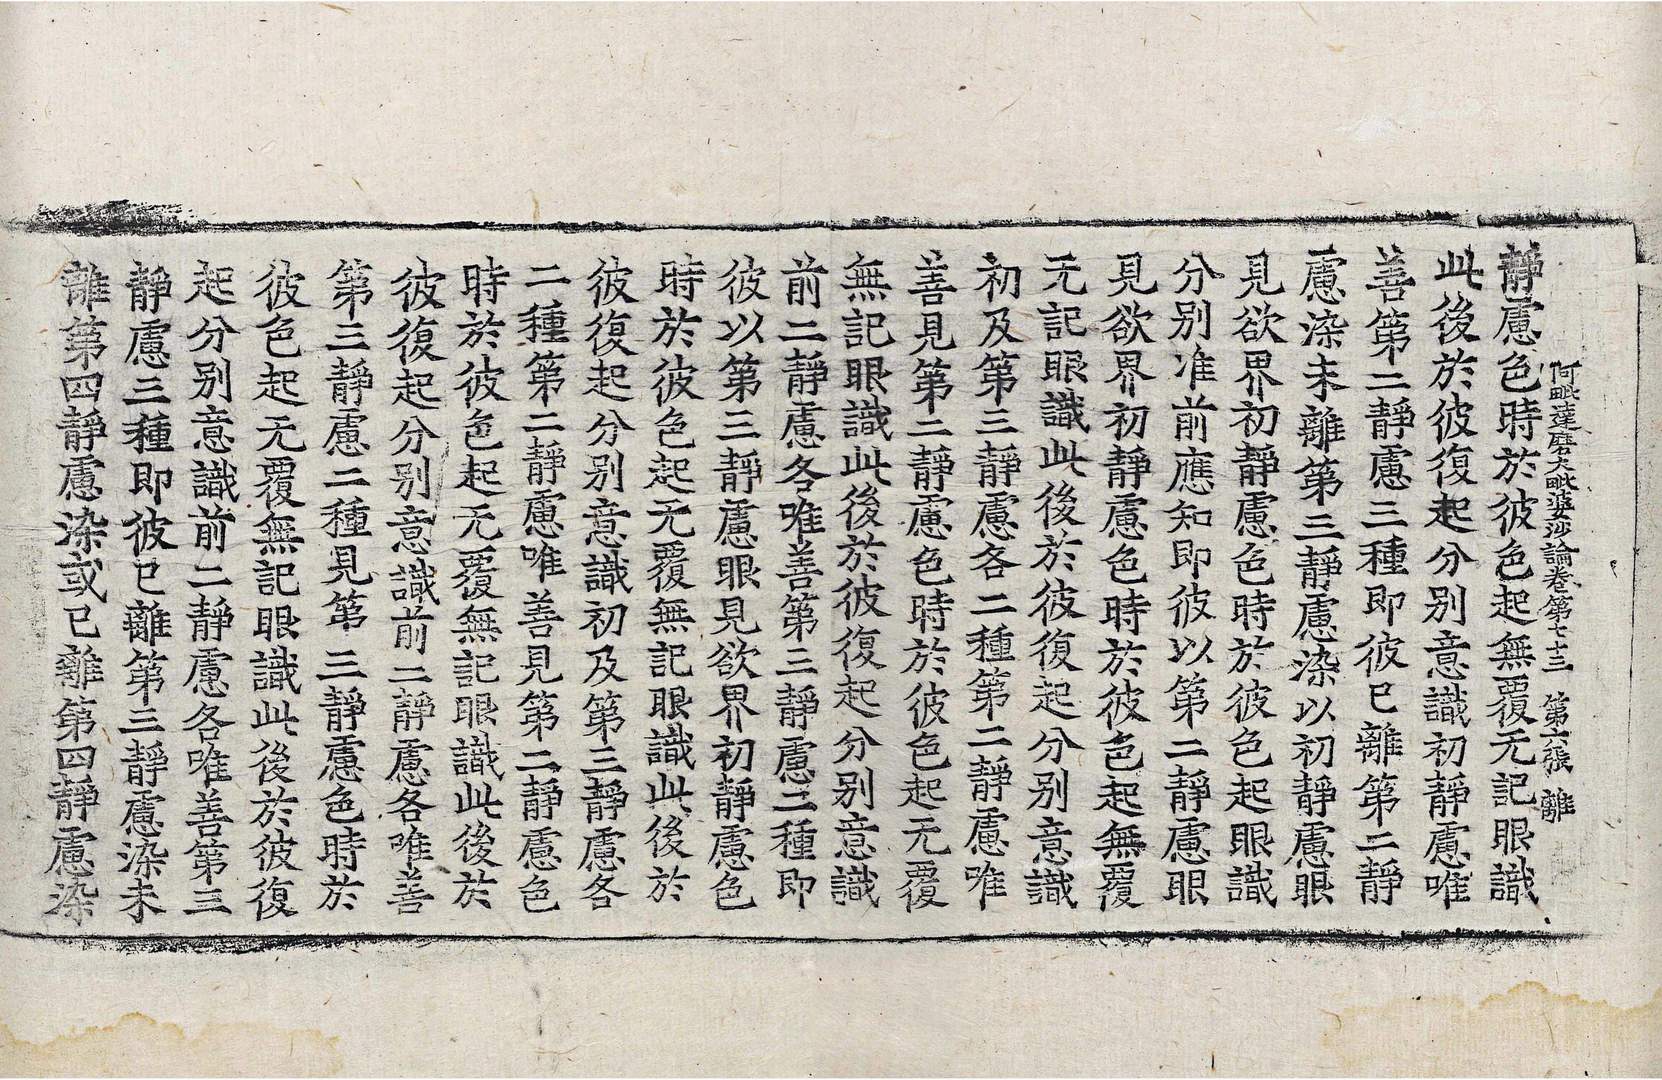 阿毗達磨大毗婆沙論卷第七十三　第六張　離
靜慮色時於彼色起無覆无記眼識
此後於彼復起分別意識初靜慮唯
善第二靜慮三種即彼已離第二靜
慮染未離第三靜慮染以初靜慮眼
見欲界初靜慮色時於彼色起眼識
分別准前應知即彼以第二靜慮眼
見欲界初靜慮色時於彼色起無覆
无記眼識此後於彼復起分別意識
初及第三靜慮各二種第二靜慮唯
善見第二靜慮色時於彼色起无覆
無記眼識此後於彼復起分別意識
前二靜慮各唯善第三靜慮二種即
彼以第三靜慮眼見欲界初靜慮色
時於彼色起无覆無記眼識此後於
彼復起分別意識初及第三靜慮各
二種第二靜慮唯善見第二靜慮色
時於彼色起无覆無記眼識此後於
彼復起分別意識前二靜慮各唯善
第三靜慮二種見第三靜慮色時於
彼色起无覆無記眼識此後於彼復
起分別意識前二靜慮各唯善第三
靜慮三種即彼已離第三靜慮染未
離第四靜慮染或已離第四靜慮染